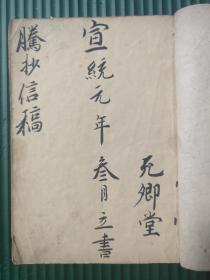 死卿堂
宣統元年叁月立書
騰抄信稿